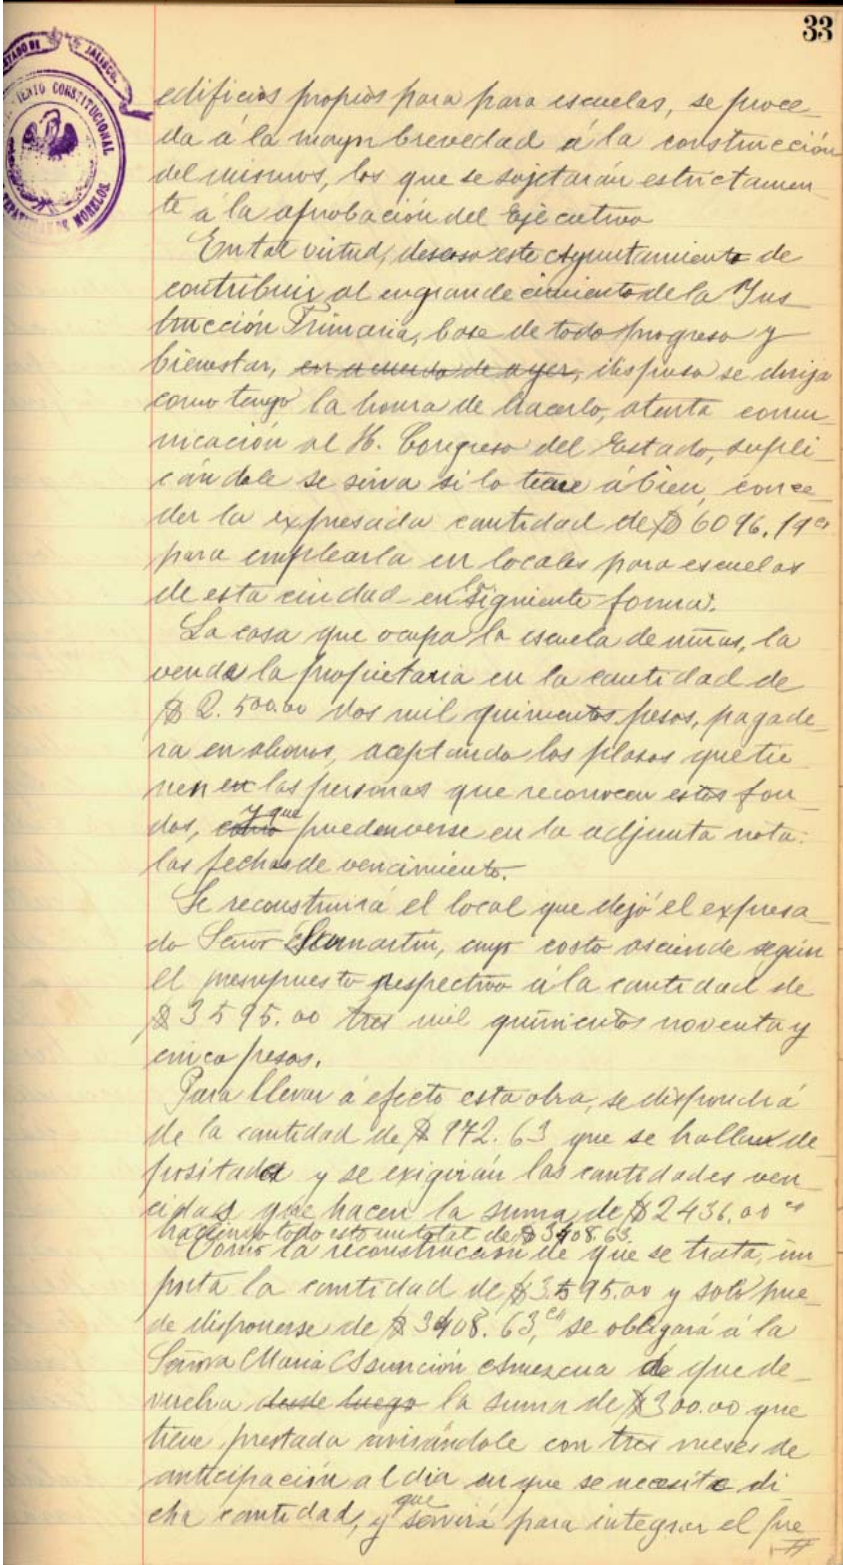 33
ESTADO DE JALISCO.
CONSTITUCIONAL
DE MORELOS.
edificios propios para para escuelas, se proce_
da á la mayor brevedad á la construcción
del mismos, los que se sujetarán estrictamen_
te á la aprobación del Ejecutivo
En tal virtud, deseoso este Ayuntamiento de
contribuir al engrandecimiento de la Ins_
trucción Primaria, base de todo progreso y
bienestar, en acuerdo de ayer, dispuso se dirija
como tengo la honra de hacerlo, atenta comu_
nicación al H. Congreso del Estado, supli_
cándole se sirva si lo tiene á bien, conce_
der la expresada cantidad de $6096.19cs
para emplearla en locales para escuelas
de esta ciudad en la siguiente forma.
La casa que ocupa la escuela de niñas, la
vende la propietaria en la cantidad de
$2.500.00 dos mil quinientos pesos, pagade_
ra en abonos, aceptando los plasos que tie_
nen en las personas que reconocen estos fon_
dos, como y que pueden verse en la adjunta nota.
las fechas de vencimiento.
Se reconstruirá el local que dejó el expresa_
do Señor Sanmartín, cuyo costo asciende según
el presupuesto respectivo á la cantidad de
$3595.00 tres mil quinientos noventa y
cinco pesos.
Para llevar á efecto esta obra, se dispondrá
de la cantidad de $972.63 que se hallan de
positada y se exigirán las cantidades ven_
cidas que hacen la suma de $2436.00 cs
haciendo todo esto un total de $3408.63.
Como la reconstrucción de que se trata, im_
porta la cantidad de $3595.00 y solo pue_
de disponerse de $3408.63,cs se obligará á la
Señora Maria Asunción Amezcua de que de_
vuelva desde luego la suma de $300.00 que
tiene prestada avisándole con tres meses de
anticipación al dia en que se necesite di_
cha cantidad, y que servirá para integrar el pre_